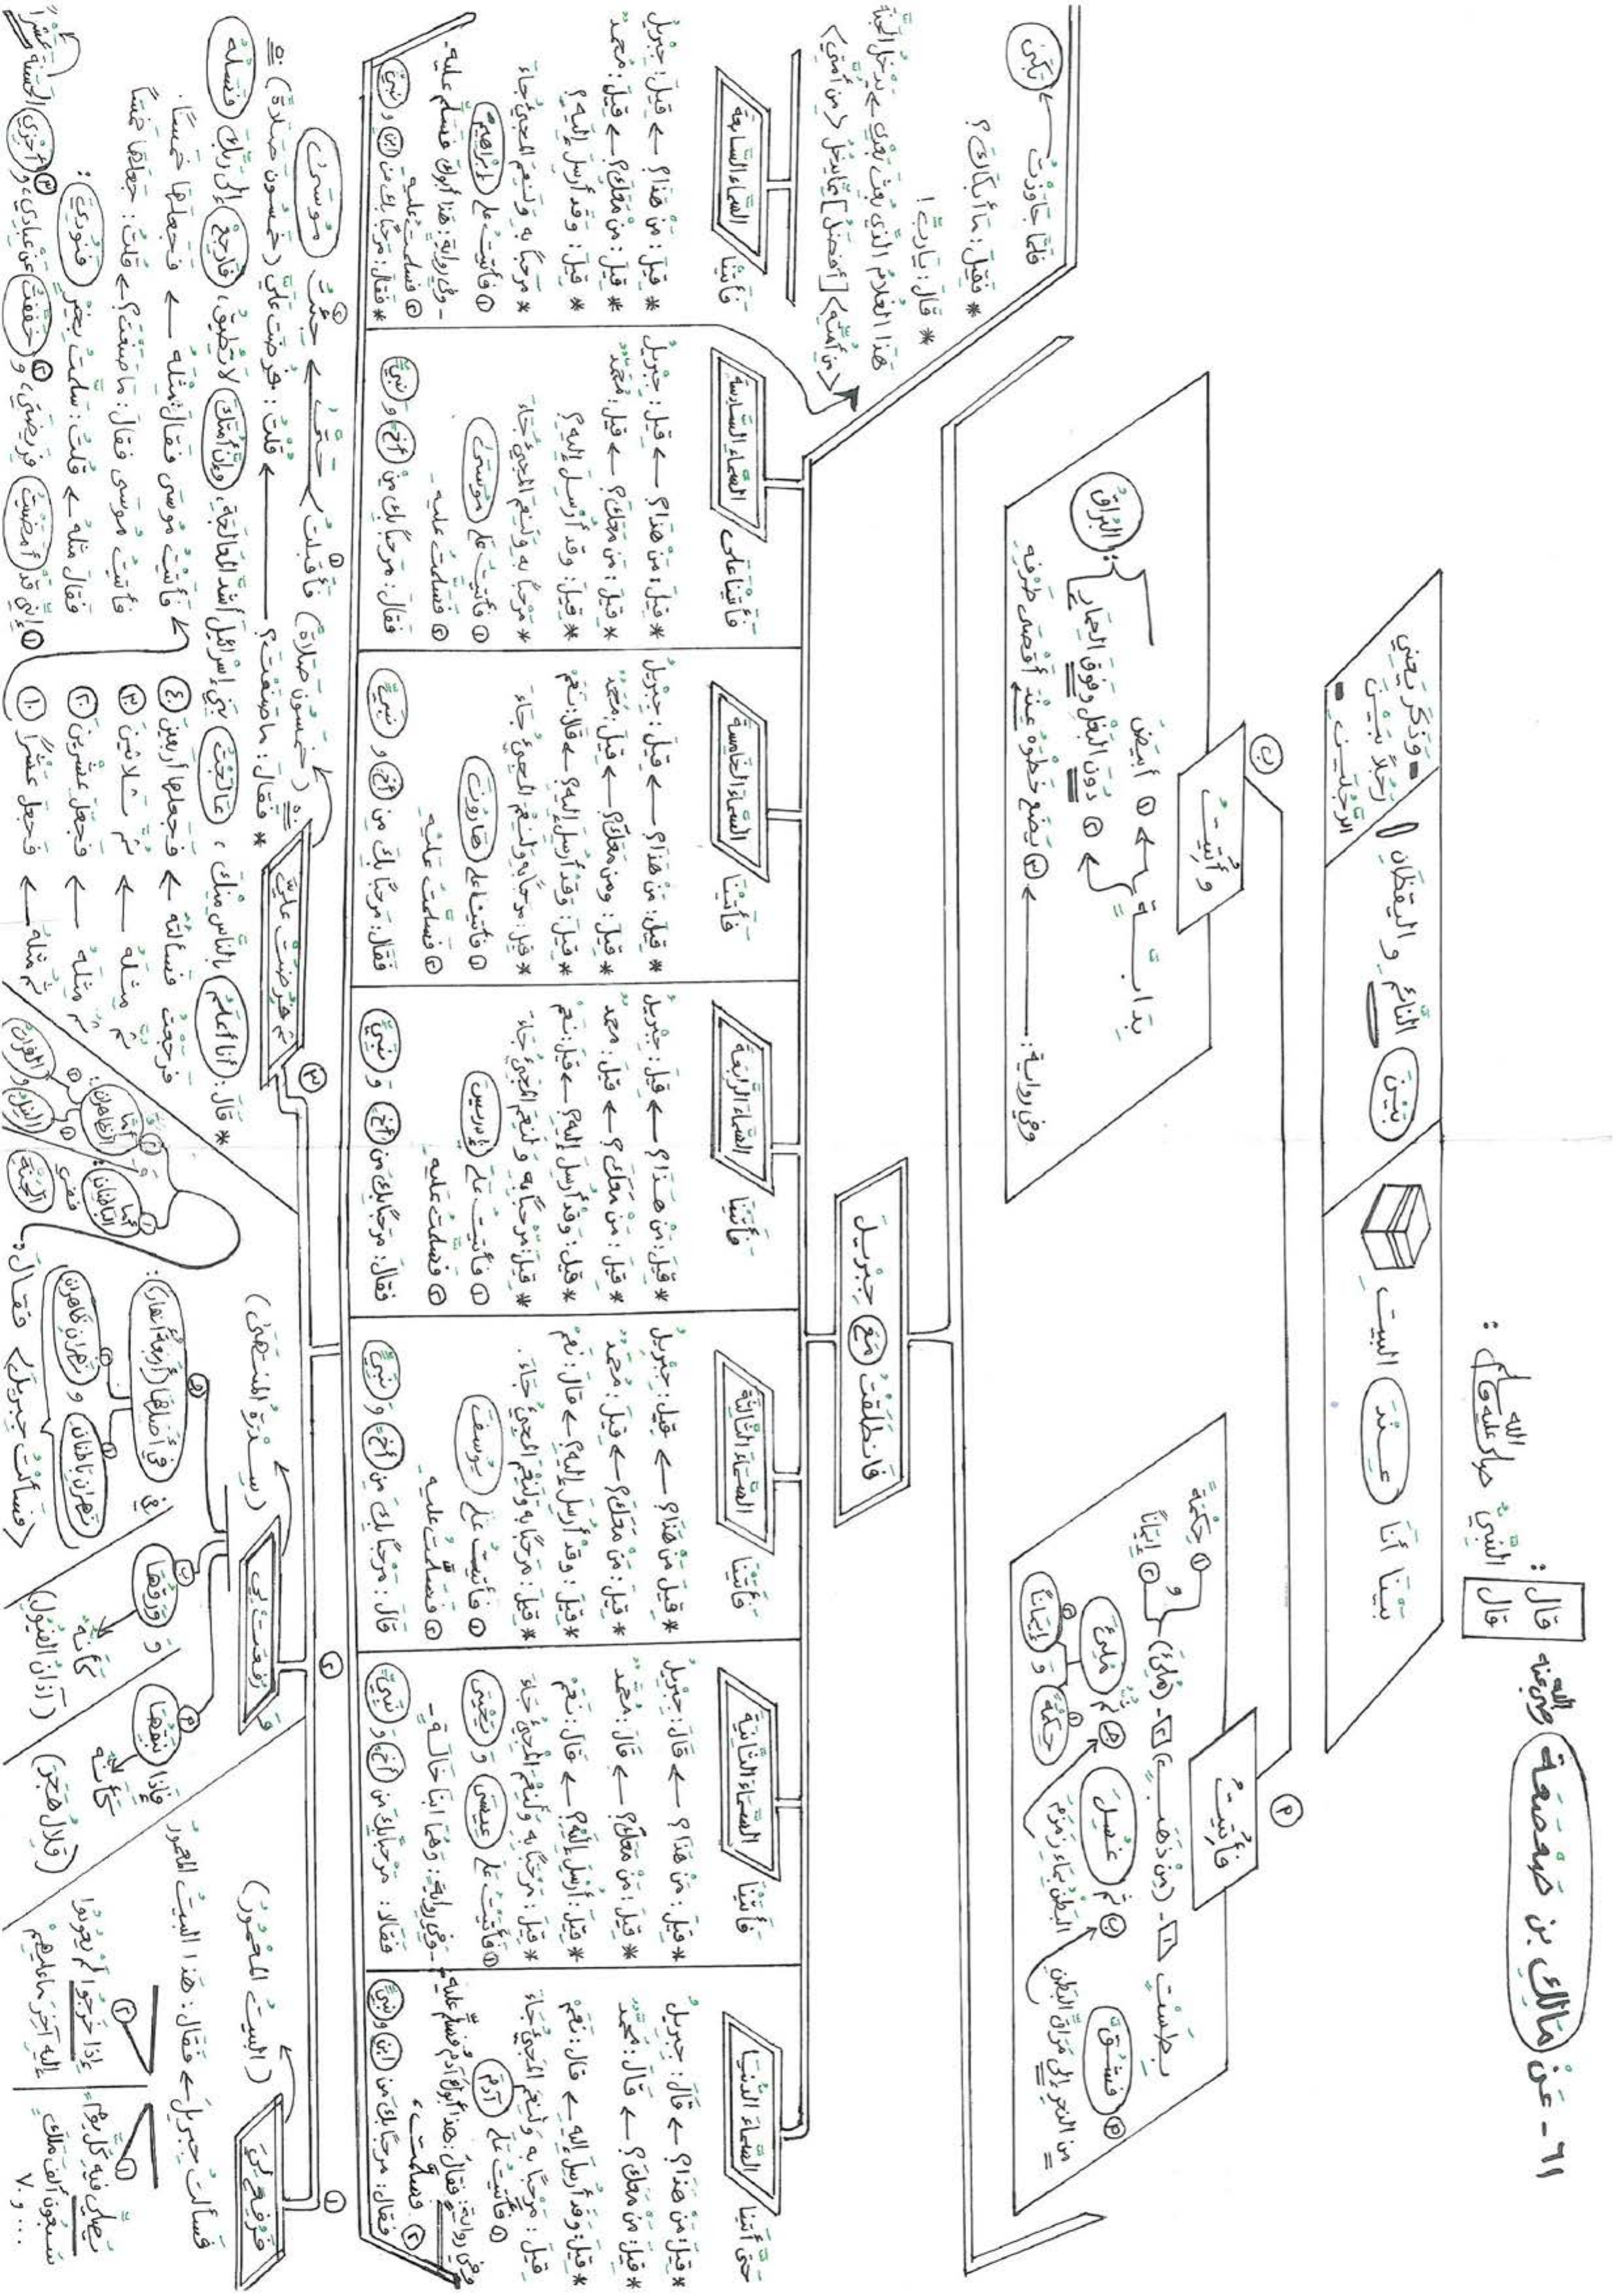 ٦١ - عَنْ مَالِكِ بن صَعْصَعَة رضي الله عنه قال : قال النَّبِيُّ صلى الله عليه وسلم :
بَيْنَا أَنَا عِنْدَ البيتِ
بَيْنَ النَّائم و اليقظان
- وَذَكَرَ يَعْنِي
رَجُلاً بَيْنَ
الرَّجُلَيْنِ -
أ
فأُتِيتُ
بِطَسْتٍ ١- (مِنْ ذَهَبٍ) ٢- (مُلِئَ)
١ حِكْمَةً
و
٢ إِيمَانًا
أ فَشُقَّ
من النحرِ إلى مَرَاقِّ البَطْنِ
ب ثم غُسِلَ
البَطْنُ بِمَاءِ زَمْزَمَ
ج ثُمَّ مُلِئَ
١ حِكْمَةً و ٢ إِيمَانًا
ب
وأُتِيتُ
بِدَابَّةٍ
١ أبيَضَ
٢ دُونَ البَغْلِ وفَوْقَ الحِمَارِ : البُرَاقُ
وفي رواية : ٣ يَضَعُ خَطْوَهُ عِنْدَ أَقْصَى طَرْفِهِ
فَانْطَلَقْتُ مَعَ جِبْرِيلَ
حَتَّى أَتَيْنَا السَّمَاءَ الدُّنْيَا
* قِيلَ : مَنْ هَذَا ؟ ← قَالَ : جِبْرِيلُ
* قِيلَ : مَنْ مَعَكَ ؟ ← قَالَ : مُحَمَّدٌ
* قِيلَ : وَقَد أُرْسِلَ إليه ← قَالَ : نَعَمْ
قِيلَ : مَرْحَبًا به وَلَنِعْمَ المَجِيْءُ جَاءَ
١ فأَتَيْتُ عَلَى آدَمَ
وفي رواية : فقالَ : هذا أبوكَ آدَمُ فَسَلِّمْ عليه
٢ فَسَلَّمْتُ ،
فقال : مَرْحَبًا بك من ابنٍ ونَبِيٍّ
فَأَتَيْنَا السَّمَاءَ الثَّانِيَةَ
* قِيلَ : مَنْ هَذَا ؟ ← قَالَ : جِبْرِيلُ
* قِيلَ : مَنْ مَعَكَ ؟ ← قَالَ : مُحَمَّدٌ
* قِيلَ : أُرْسِلَ إِلَيْهِ ؟ ← قَالَ : نَعَمْ
* قِيلَ : مَرْحَبًا بِهِ وَلَنِعْمَ المَجِيْءُ جَاءَ
١ فَأَتَيْتُ عَلَى عِيسَى وَ يَحْيَى
- وفي رواية : وَهُمَا ابْنَا خَالَةٍ -
فقالا : مَرْحَبًا بِكَ من أَخٍ وَ نَبِيٍّ
فَأَتَيْنَا السَّمَاءَ الثَّالِثَةَ
* قِيلَ مَنْ هَذَا ؟ ← قِيلَ : جِبْرِيلُ
* قِيلَ : مَنْ مَعَكَ ؟ ← قِيلَ : مُحَمَّدٌ
* قِيلَ : وقَدْ أُرْسِلَ إليه ؟ ← قَالَ : نَعَمْ
* قِيلَ : مَرْحَبًا به وَلَنِعْمَ المَجِيْءُ جَاءَ .
١ فَأَتَيْتُ عَلَى يُوسُفَ
٢ فَسَلَّمْتُ عليه
قَالَ : مَرْحَبًا بِكَ مِن أَخٍ وَ نَبِيٍّ
فَأَتَيْنَا السَّمَاءَ الرَّابِعَةَ
* قِيلَ : مَن هَذَا ؟ ← قِيلَ : جِبْرِيلُ
* قِيلَ : مَنْ مَعَكَ ؟ ← قِيلَ : مُحمدٌ
* قِيلَ : وَقَدْ أُرْسِلَ إليه ؟ ← قِيلَ : نَعَمْ
* قِيلَ : مَرْحَبًا به وَ لَنِعْمَ المَجِيْءُ جَاءَ
١ فأَتَيْتُ عَلَى إِدْرِيسَ
٢ فَسَلَّمْتُ عليه
فقالَ : مَرْحَبًا بِكَ مِن أَخٍ وَ نَبِيٍّ
فَأَتَيْنَا السَّمَاءَ الخَامِسَةَ
* قِيلَ : مَن هَذَا ؟ ← قِيلَ : جِبْرِيلُ
* قِيلَ : ومن مَعَكَ ؟ ← قِيلَ : مُحَمَّدٌ
* قِيلَ : وَقَدْ أُرْسِلَ إليه ؟ ← قَالَ : نَعَمْ
* قِيلَ : مَرْحَبًا به وَلَنِعْمَ المَجِيْءُ جَاءَ
١ فَأَتَيْنَا عَلَى هَارُونَ
٢ فسلمت عليه
فَقَالَ : مَرْحَبًا بِكَ مِن أَخٍ وَ نَبِيٍّ
فَأَتَيْنَا عَلَى السَّمَاءِ السَّادِسَةِ
* قِيلَ : مَنْ هَذَا ؟ ← قِيلَ : جِبْرِيلُ
* قِيلَ : مَن مَعَكَ ؟ ← قِيلَ : مُحَمَّدٌ
* قِيلَ : وقد أُرْسِلَ إليه ؟
* مَرْحَبًا به وَلَنِعْمَ المَجِيْءُ جَاءَ
١ فَأَتَيْتُ عَلَى مُوسَى
٢ فَسَلَّمْتُ عليه
فقالَ : مَرْحَبًا بك مِنْ أَخٍ وَ نَبِيٍّ
فلمَّا جَاوَزْتُ ← بَكَى
* فَقِيلَ : مَا أَبْكَاكَ ؟
* قَالَ : يَا رَبِّ !
هَذا الغُلَامُ الَّذِي بُعِثَ بَعْدِي ← يَدْخُلُ الجَنَّةَ
<مِن أُمَّتِهِ> [أَفْضَلُ] مِمَّا يَدْخُلُ <مِن أُمَّتِي>
فَأَتَيْنَا السَّمَاءَ السَّابِعَةَ
* قِيلَ : مَنْ هَذَا ؟ ← قِيلَ : جِبْرِيلُ
* قِيلَ : مَنْ مَعَكَ ؟ ← قِيلَ : مُحمدٌ
* قِيلَ : وقد أُرْسِلَ إليه ؟
* مَرْحَبًا به وَلَنِعْمَ المَجِيْءُ جَاءَ
١ فَأَتَيْتُ عَلَى إِبْرَاهِيمَ
- وفي رواية : هَذَا أَبُوكَ فَسَلِّمْ عليه -
٢ فسلَّمتُ عليه
* فقالَ : مَرْحَبًا بك من ابنٍ و نَبِيٍّ
١
فَرُفِعَ لِيَ
(البَيْتُ المَعْمُورُ)
فَسَأَلْتُ جِبْرِيلَ ← فَقَالَ : هَذَا البَيْتُ المَعْمُورُ
١ يُصَلِّي فيه كُلَّ يَوْمٍ
سَبْعُونَ أَلْفَ مَلَكٍ
٧٠٠٠٠
٢ إِذَا خَرَجُوا لَمْ يَعُودُوا
إليه آخِرَ مَا عَلَيْهِم
٢
و رُفِعَتْ لِي
(سِدْرَةُ المُنْتَهَى)
أ فَإِذَا نَبْقُهَا كَأَنَّهُ
(قِلَالُ هَجَرَ)
ب وَ وَرَقُهَا كَأَنَّهُ
(آذَانُ الفُيُولِ)
ج في أَصْلِهَا (أربعةُ أَنْهَارٍ) :
١ نَهْرَانِ بَاطِنَانِ وَ ٢ نَهْرَانِ ظَاهِرَانِ
<فَسَأَلْتُ جِبْرِيلَ> فَقَالَ :
١ أَمَّا البَاطِنَانِ : فَفِي الجَنَّةِ
٢ و أَمَّا الظَّاهِرَانِ : ١ النِّيلُ و ٢ الفُرَاتُ
٣
ثُمَّ فُرِضَتْ عَلَيَّ
٥٠ (خَمْسُونَ صَلَاةً) ١ فَأَقْبَلْتُ ← حَتَّى ← ٢ جِئْتُ مُوسَى
* فَقَالَ : مَا صَنَعْتَ ؟ ← قُلْتُ : فُرِضَتْ عَلَيَّ (خَمْسُونَ صَلَاةً) ٥٠
* قَالَ : أَنَا أَعْلَمُ بالنَّاسِ مِنْكَ ، عَالَجْتُ بَنِي إِسْرَائِيلَ أَشَدَّ المُعَالَجَةِ ، وَإِنَّ أُمَّتَكَ لَا تُطِيقُ ، فَارْجِعْ إلى رَبِّكَ فَسَلْهُ
فَرَجَعْتُ فَسَأَلْتُهُ ← فَجَعَلَهَا أَرْبَعِينَ ٤٠
ثُمَّ مِثْلَهُ ← ثُمَّ ثَلَاثِينَ ٣٠
ثُمَّ مِثْلَهُ ← فَجَعَلَ عِشْرِينَ ٢٠
ثُمَّ مِثْلَهُ ← فَجَعَلَ عَشْرًا ١٠
فَأَتَيْتُ مُوسَى فَقَالَ : مِثْلَهُ ← فَجَعَلَهَا خَمْسًا .
فأتيتُ موسى فقالَ : مَا صَنَعْتَ ؟ ← قُلْتُ : جَعَلَهَا خَمْسًا
فَقَالَ مِثْلَهُ ← قُلْتُ : سَلَّمْتُ بِخَيْرٍ فَنُودِيَ :
١ إِنِّي قَدْ أَمْضَيْتُ فَرِيضَتِي ، و ٢ خَفَّفْتُ عَنْ عِبَادِي ، و ٣ أَجْزِي الحَسَنَةَ عَشْرًا